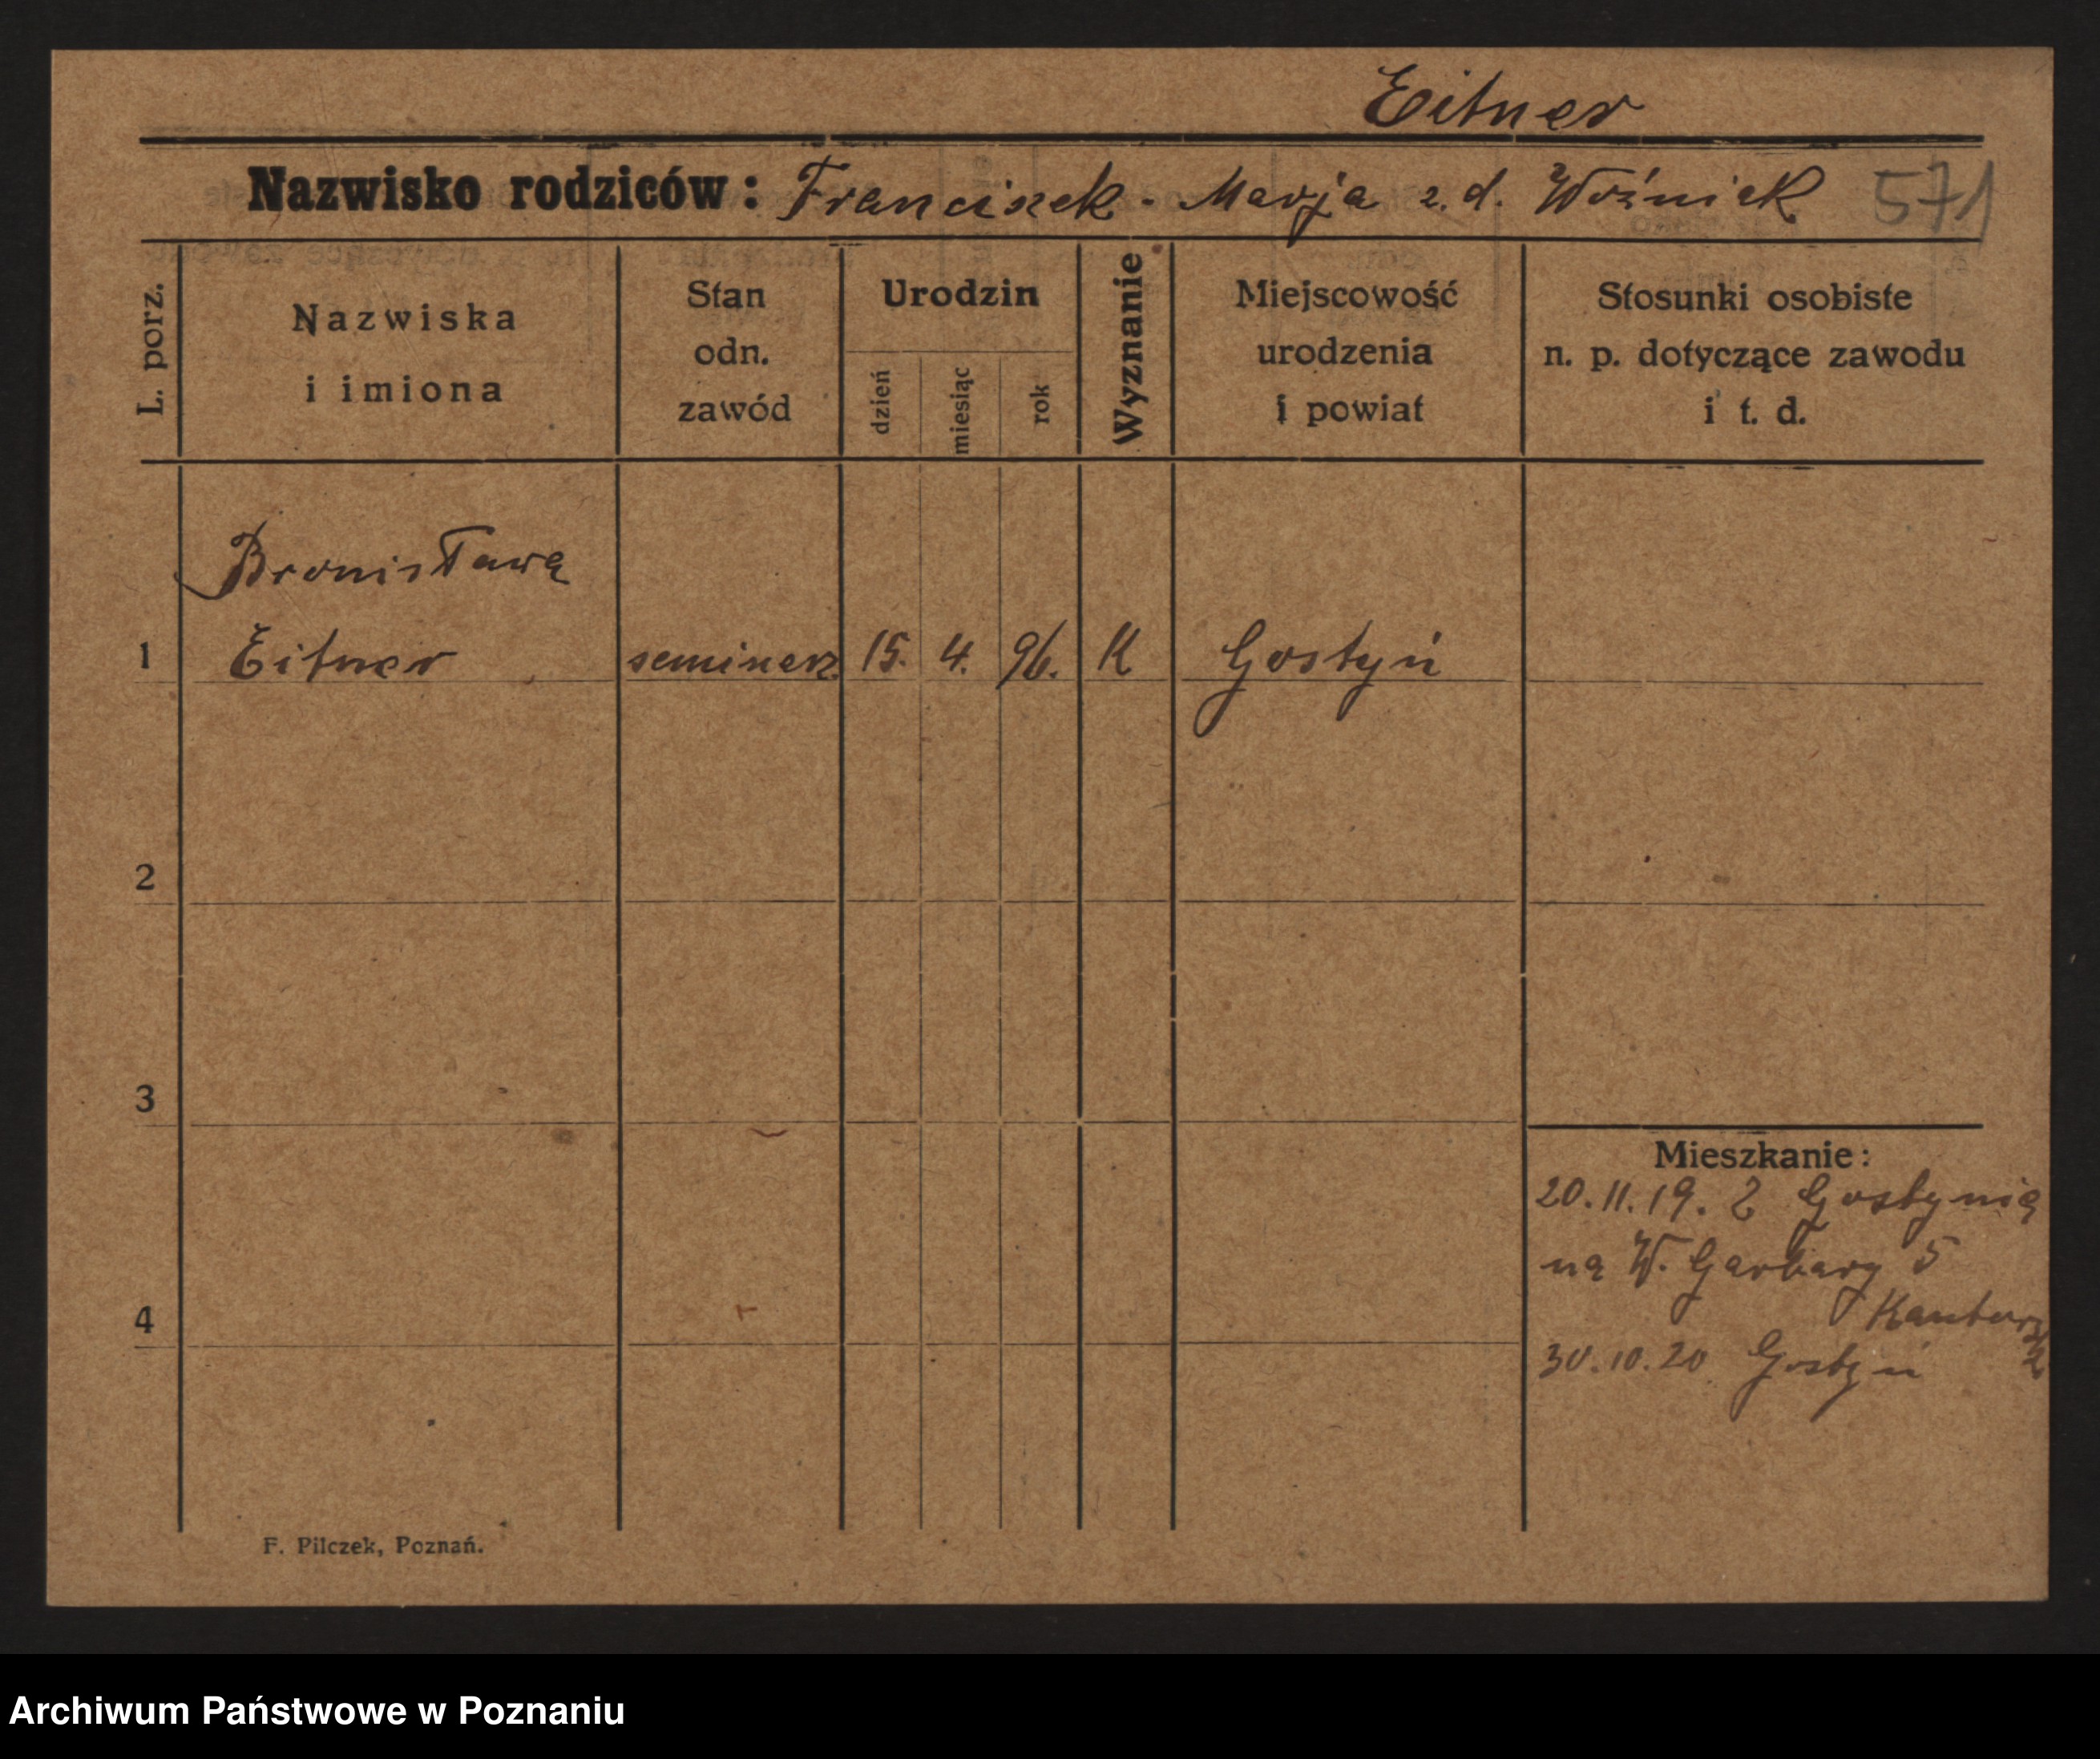 Eitner
Nazwisko rodziców: Franciszek - Marja z. d. Woźniak 571
L. porz.
Nazwiska
i imiona
Stan
odn.
zawód
Urodzin
dzień
miesiąc
rok
Wyznanie
Miejscowość
urodzenia
i powiat
Stosunki osobiste
n. p. dotyczące zawodu
i t. d.
Bronisława
1 Eitner seminarz. 15. 4. 96. K Gostyń
2
3
Mieszkanie:
20.11.19. Z Gostynia
na W. Garbary 5
4
30.10.20 Gostyń
F. Pilczek, Poznań.
Archiwum Państwowe w Poznaniu